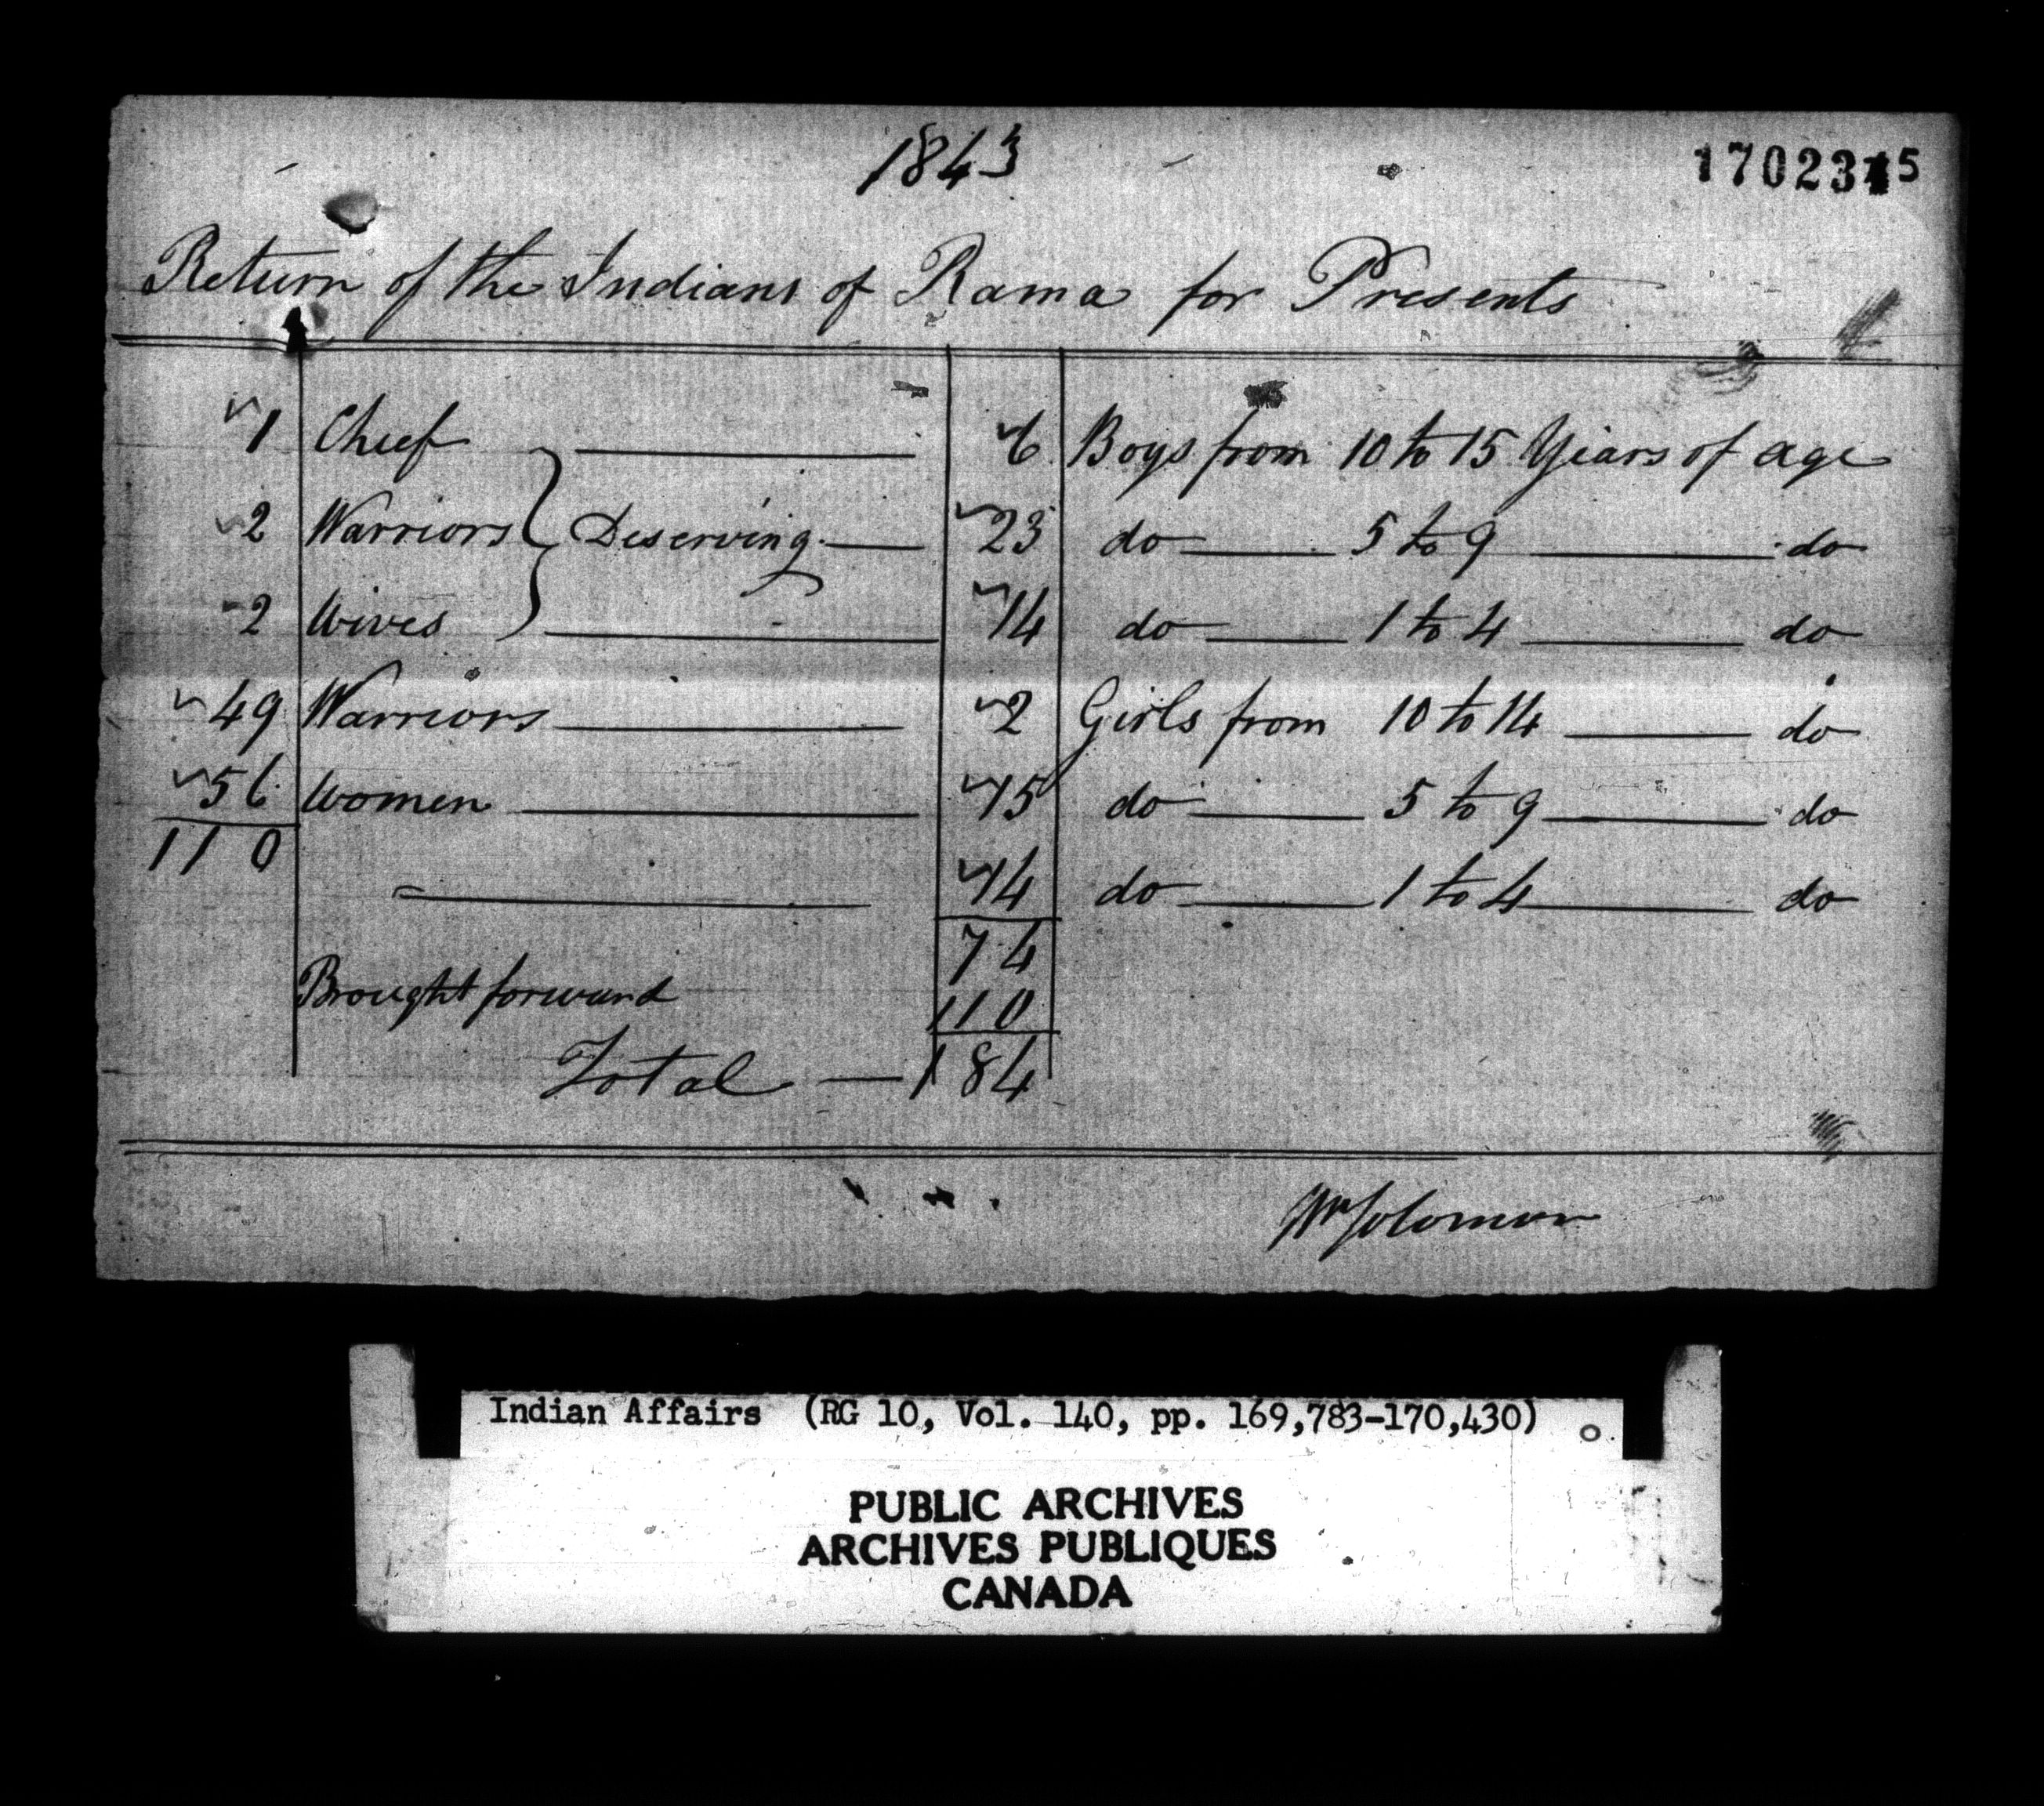 1843
1702345
Return of the Indians of Rama for Presents
1 Chief
2 Warriors Deserving
2 Wives
49 Warriors
56 Women
110
6 Boys from 10 to 15 Years of age
23 do 5 to 9 do
14 do 1 to 4 do
2 Girls from 10 to 14 do
15 do 5 to 9 do
14 do 1 to 4 do
74
Brought forward 110
Total — 184
Wm Solomon
Indian Affairs (RG 10, Vol. 140, pp. 169,783-170,430)
PUBLIC ARCHIVES
ARCHIVES PUBLIQUES
CANADA